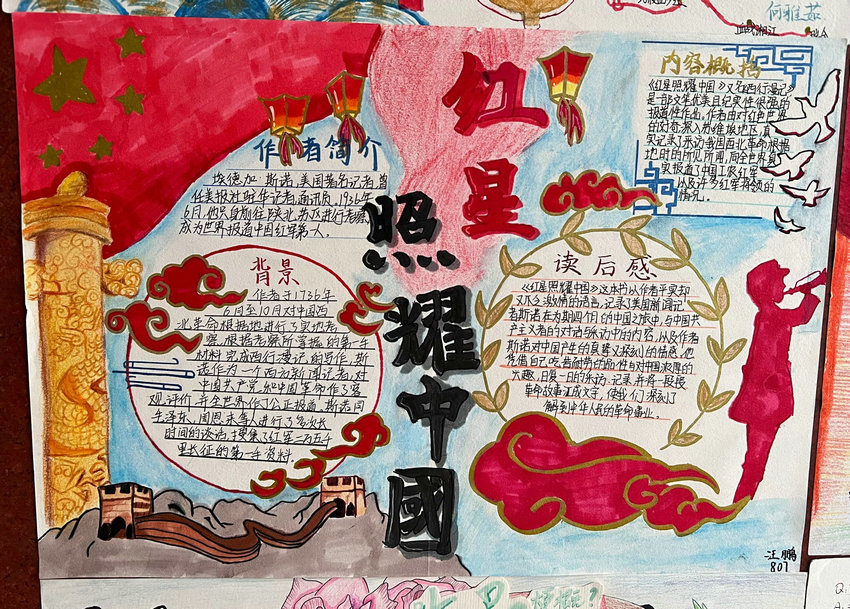 何雅茹
血战湘江
红星
照耀中國
作者简介
埃德加·斯诺,美国著名记者,曾
任美报社驻华记者、通讯员。1936年
6月,他只身前往陕北,苏区进行考察
成为世界报道中国红军第一人。
背景
作者于1936年
6月至10月对中国西
北革命根据地进行了实地考
察,根据考察所掌握的第一手
材料完成西行漫记的写作,斯
诺作为一个西方新闻记者,对
中国共产党和中国革命作了客
观评价,并全世界作了公正报道。斯诺同
毛泽东、周恩来等人进行了多次长
时间的谈话,搜集了红军二万五千
里长征的第一手资料.
内容概括
《红星照耀中国》又名西行漫记
是一部文笔优美且纪实性很强的
报道性作品,作者由对红色世界
的好奇,深入苏维埃地区,真
实记录了采访我国西北革命根据
地时的所见所闻,向全世界真
实报道了中国工农红军
以及许多红军将领的
情况。
读后感
《红星照耀中国》这本书以作者平实却
又不乏激情的语言,记录了美国新闻记
者斯诺在为期四个月的中国之旅中,与中国共
产主义者的对话与采访中的内容,以及作者
斯诺对中国产生的真挚又深刻的情感,他
凭借自己吃苦耐劳的品性与对中国浓厚的
兴趣,日复一日的采访、记录,并将一段段
革命故事汇成文字,使我们深刻了
解到中华人民的革命事业。
汪鹏
801